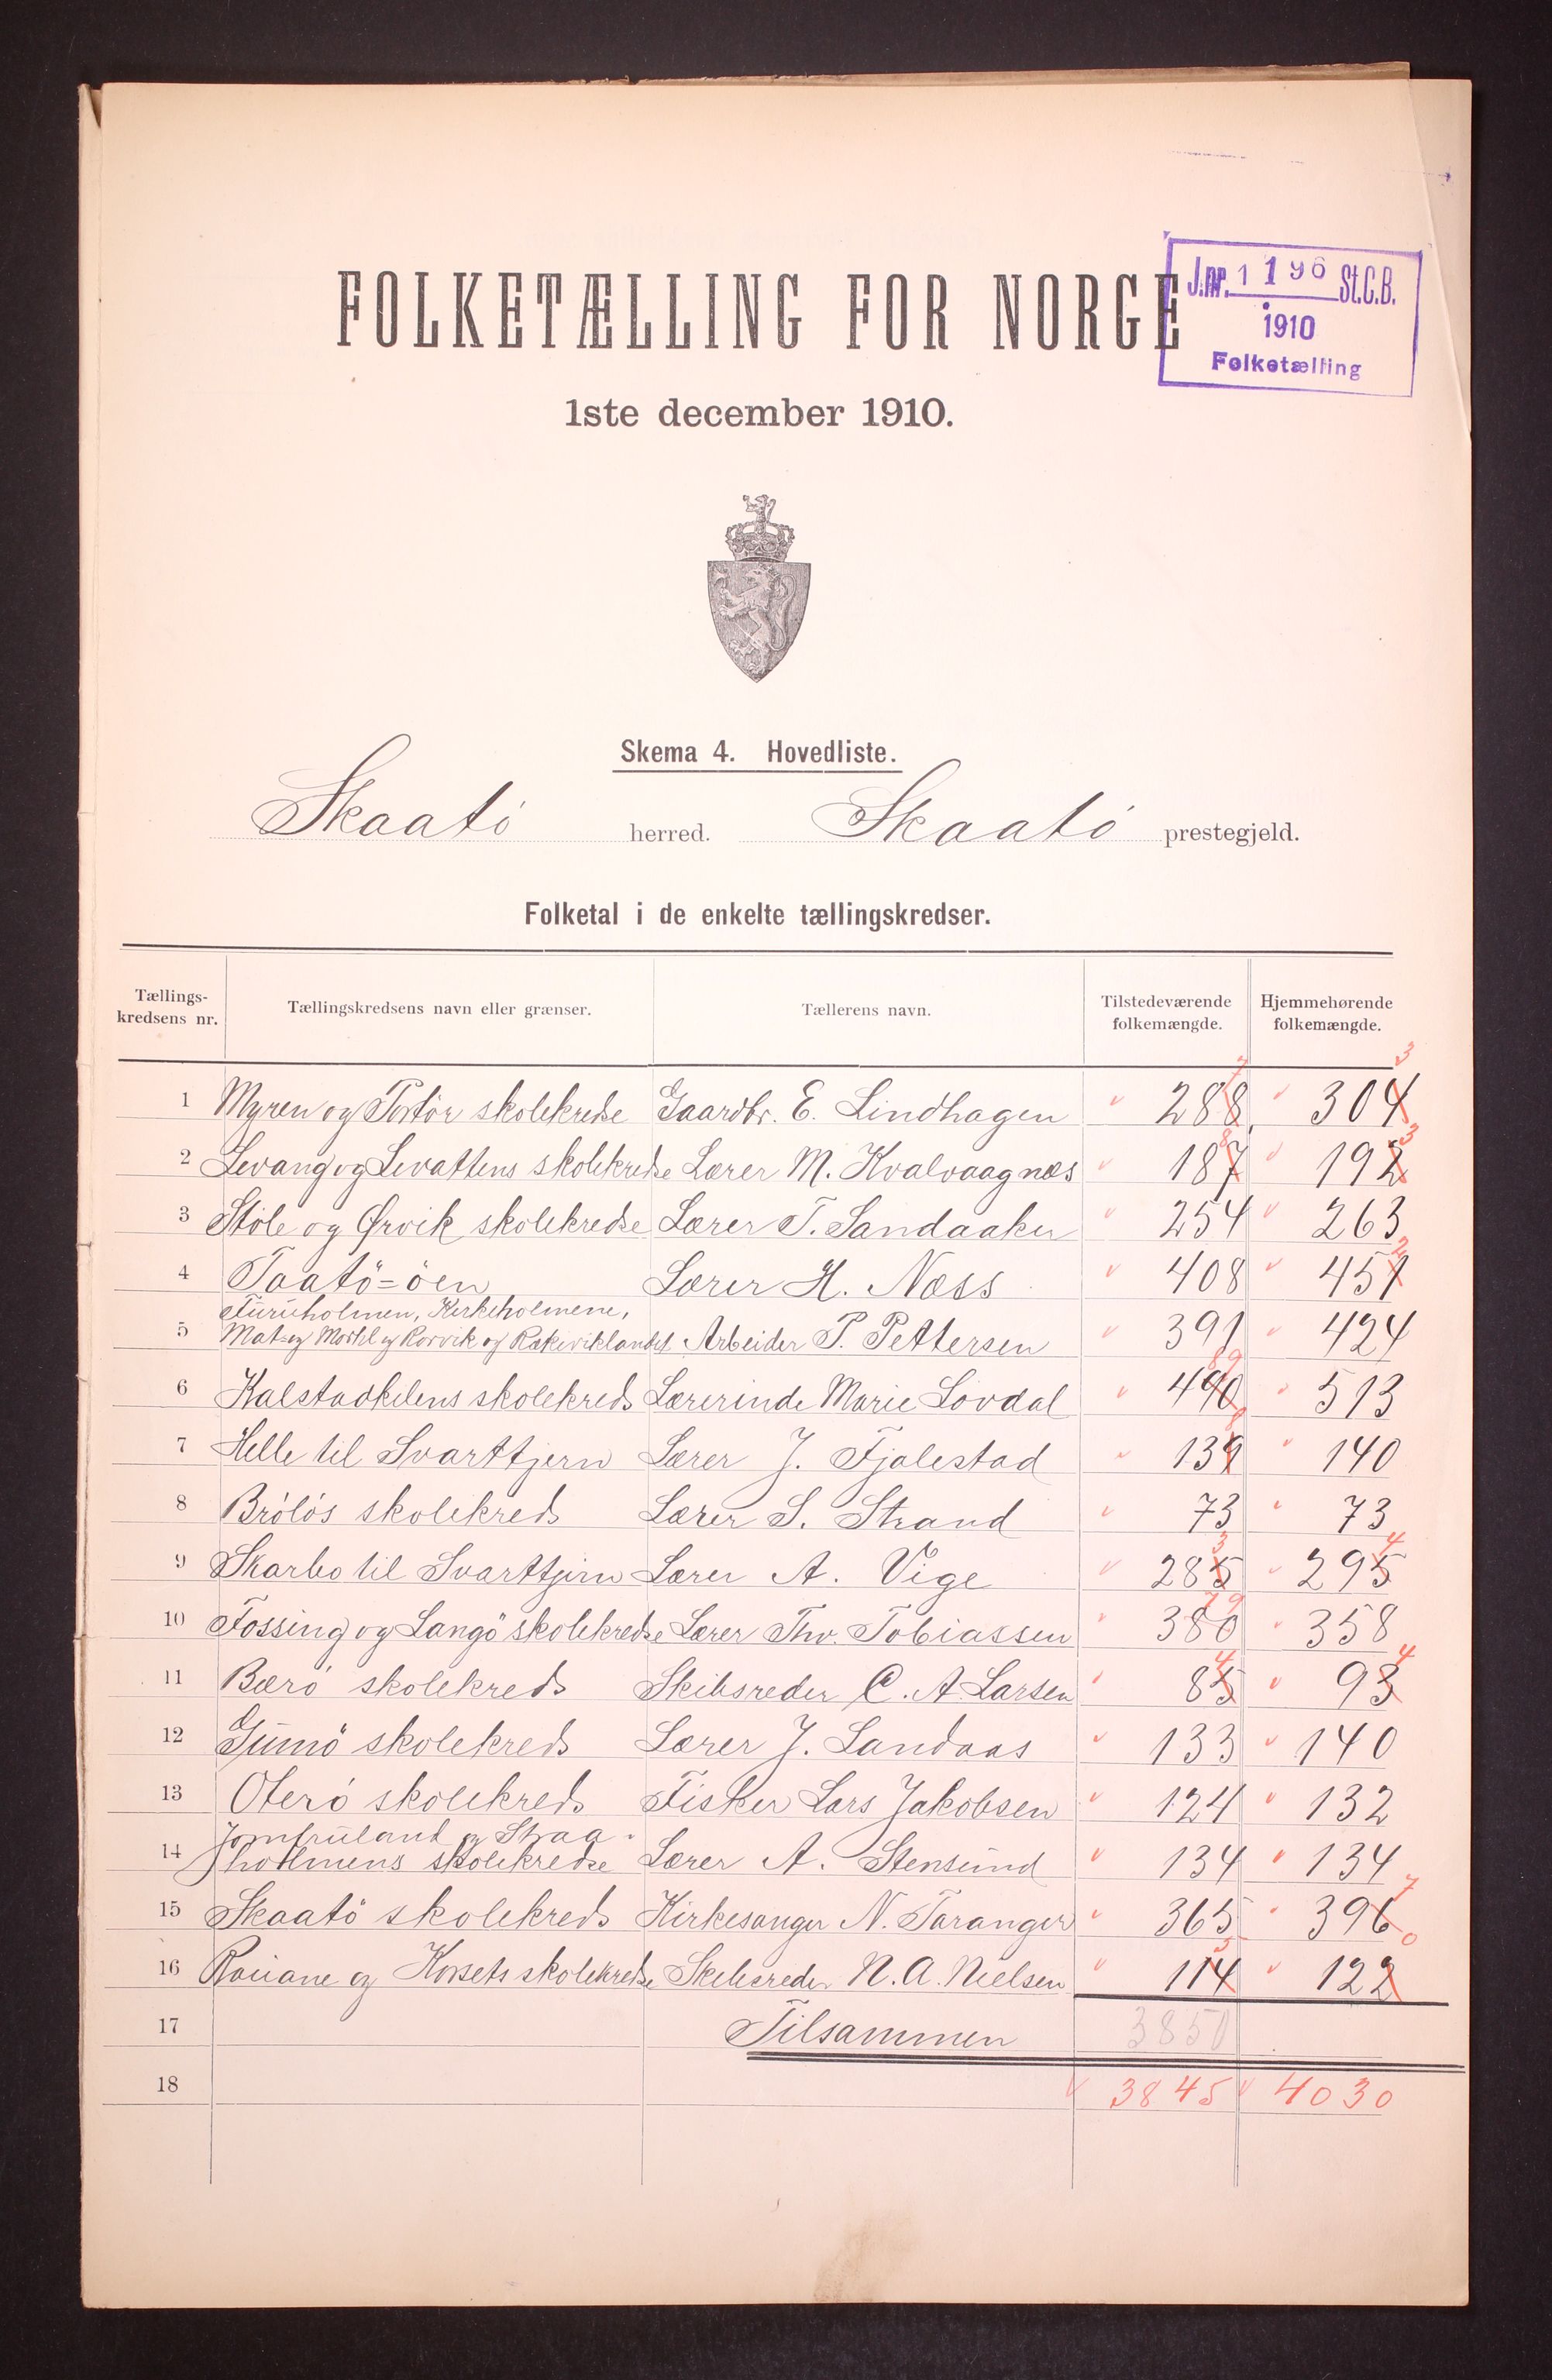 FOLKETÆLLING FOR NORGE
J.nr. 1196 St.C.B.
1910
Folketælling
1ste december 1910.
Skema 4. Hovedliste.
Skaatö herred. Skaatö prestegjeld.
Folketal i de enkelte tællingskredser.
Tællings-kredsens nr. Tællingskredsens navn eller grænser. Tællerens navn. Tilstedeværende folkemængde. Hjemmehørende folkemængde.
7 3
1 Myren og Portör skolekredse Gaardbr. E. Lindhagen 288 304
8 3
2 Levang og Levattens skolekredse Lærer M. Kvalvaagnæs 187 192
3 Stöle og Ørvik skolekredse Lærer T. Sandaaker 254 263
2
4 Taatö=öen Lærer H. Næss 408 451
Furuholmen, Kirkeholmene,
5 Mat og Mostel og Rørvik og Rakeviklandet Arbeider P. Pettersen 391 424
89
6 Kalstadkilens skolekreds Lærerinde Marie Lövdal 490 513
8
7 Helle til Svarttjern Lærer J. Fjalestad 139 140
8 Brölös skolekreds Lærer S. Strand 73 73
3 4
9 Skarbo til Svarttjern Lærer A. Vige 285 295
79
10 Fossing og Langö skolekredse Lærer Thv. Tobiassen 380 358
4 4
11 Bærö skolekreds Skibsreder C. A. Larsen 85 93
12 Gumö skolekreds Lærer J. Landaas 133 140
13 Oterö skolekreds Fisker Lars Jakobsen 124 132
Jomfruland og Straa-
14 holmens skolekredse Lærer A. Stensund 134 134
7
15 Skaatö skolekreds Kirkesanger N. Taranger 365 396
5 0
16 Rauane og Korsets skolekredse Skibsreder N. A. Nielsen 114 122
17 Tilsammen 3850
18 3845 4030